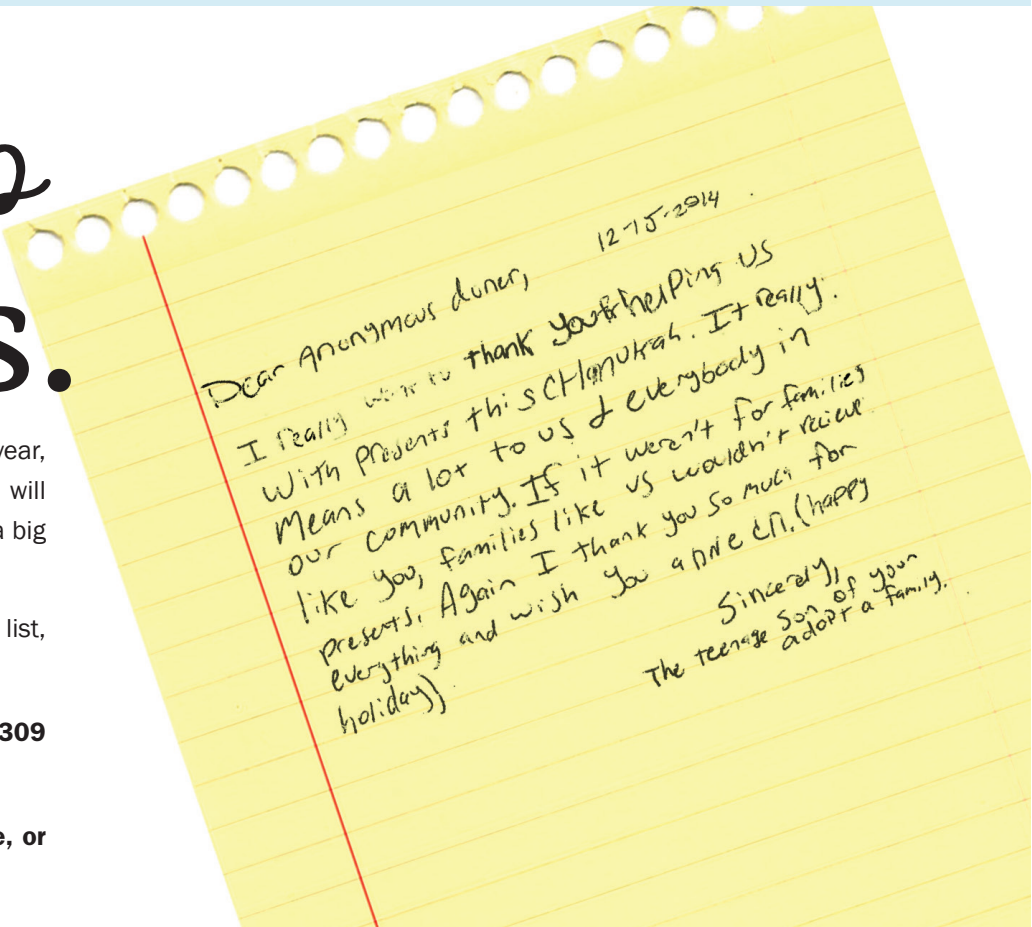 s.
year,
will
a big
list,
309
e, or
12-15-2014
Dear Anonymous doner,
I really want to thank you for helping us
with presents this CHanukah. It really
means a lot to us & everybody in
our community. If it weren't for families
like you, families like us wouldn't recieve
presents. Again I thank you so much for
everything and wish you a (happy
holiday)
Sincerely,
The teenage son of your
adopt a family.